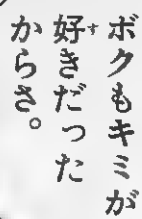 ボクもキミが
好きだった
からさ。